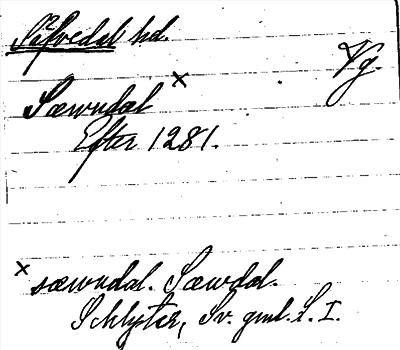 Sävedal hd.
Vg.
Sæwudal ×
Efter 1281.
× sæwudal. Sæwdal.
Schlyter, Sv. gml. L. I.